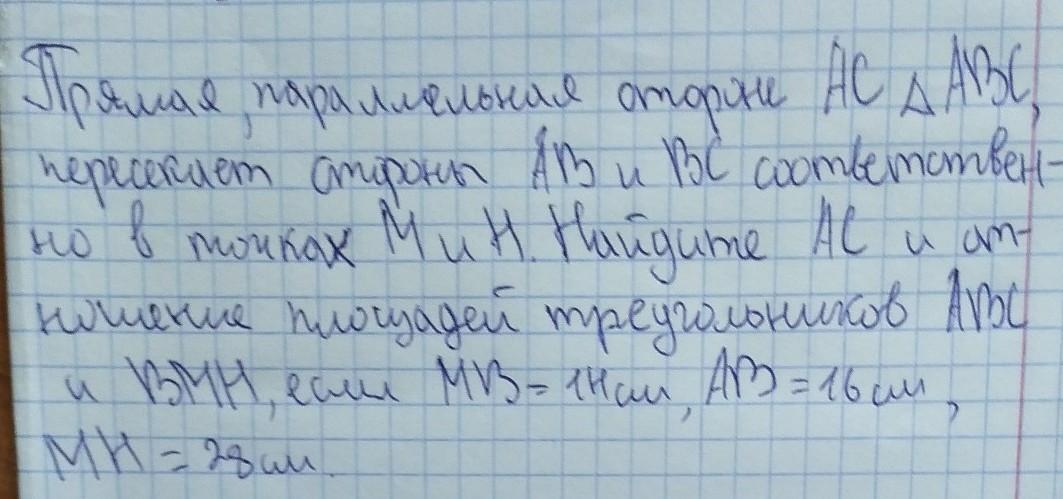 Прямая, параллельная стороне AC △ ABC,
пересекает стороны AB и BC соответствен-
но в точках M и H. Найдите AC и от-
ношение площадей треугольников ABC
и BMH, если MB = 14 см, AB = 16 см,
MH = 28 см.